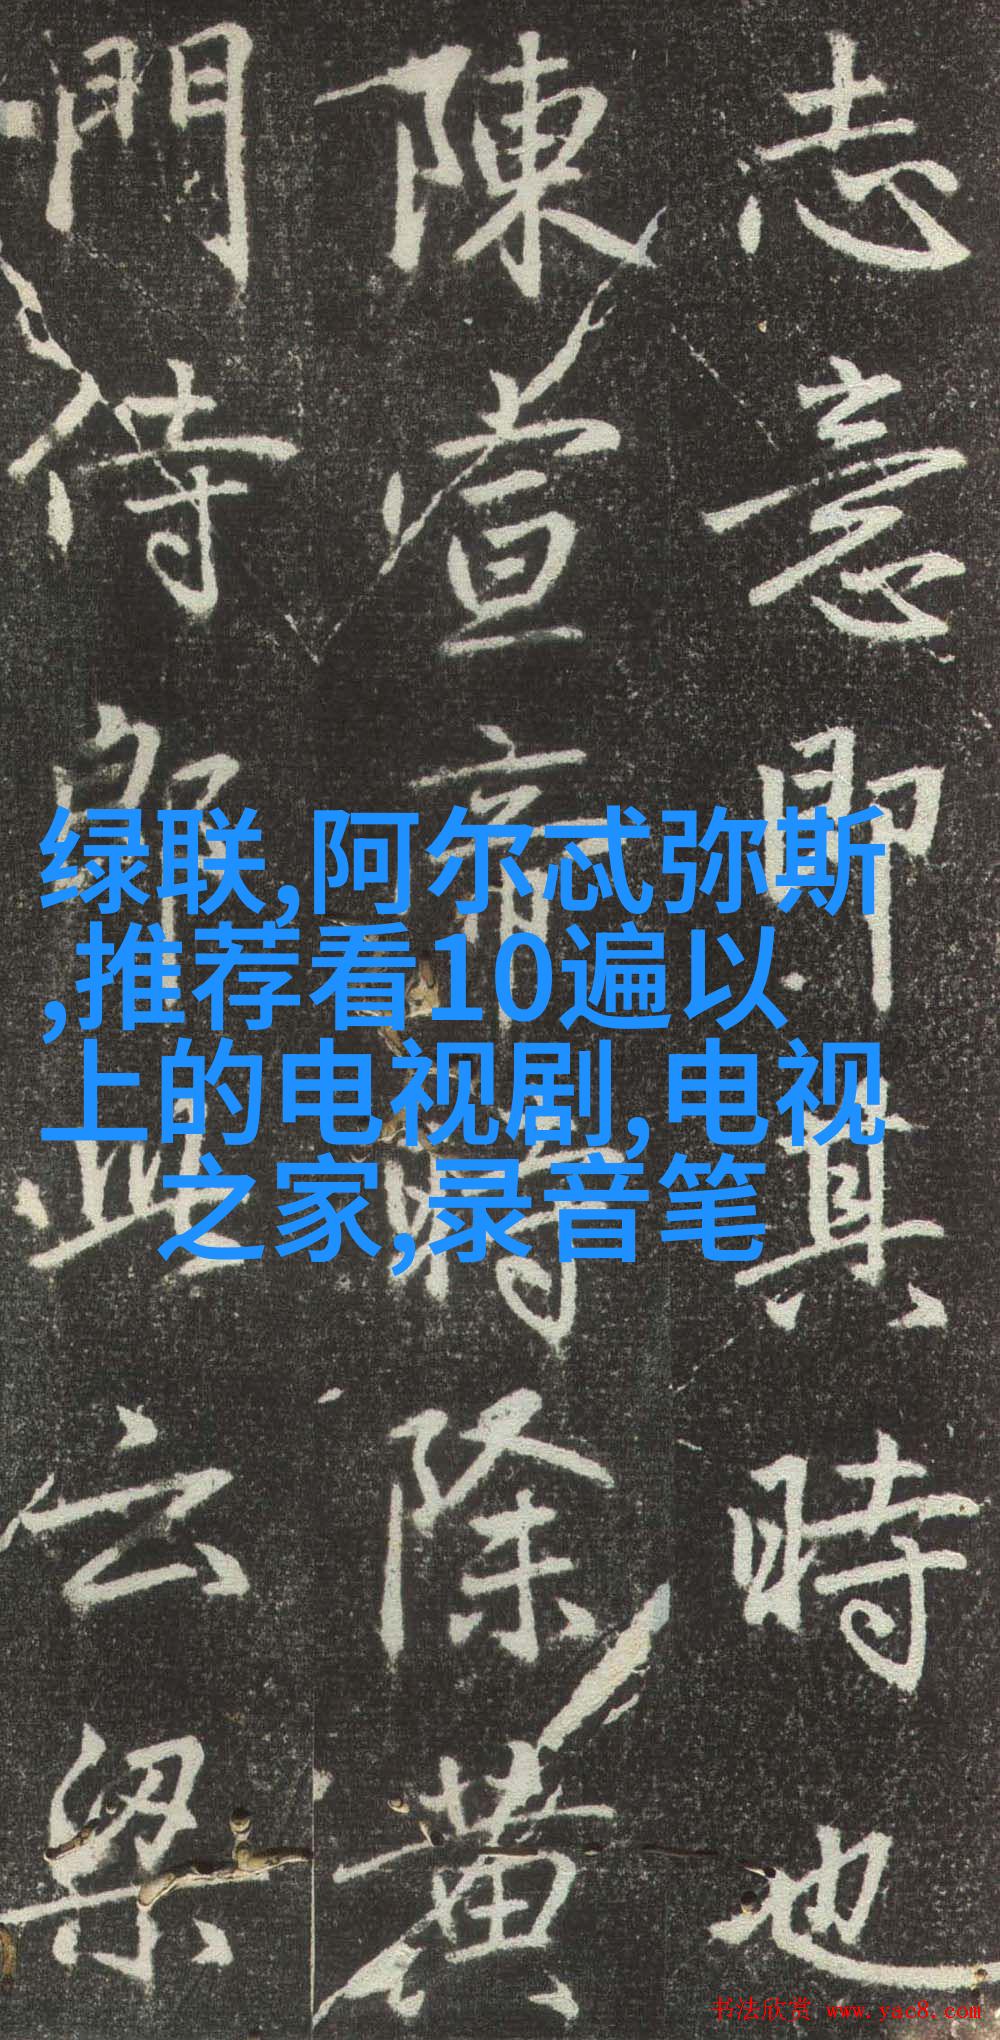 志意即其時也
陳宣帝時除黄
門侍郎此云梁
绿联,阿尔忒弥斯
,推荐看10遍以
上的电视剧,电视
之家,录音笔
书法欣赏 www.yac8.com